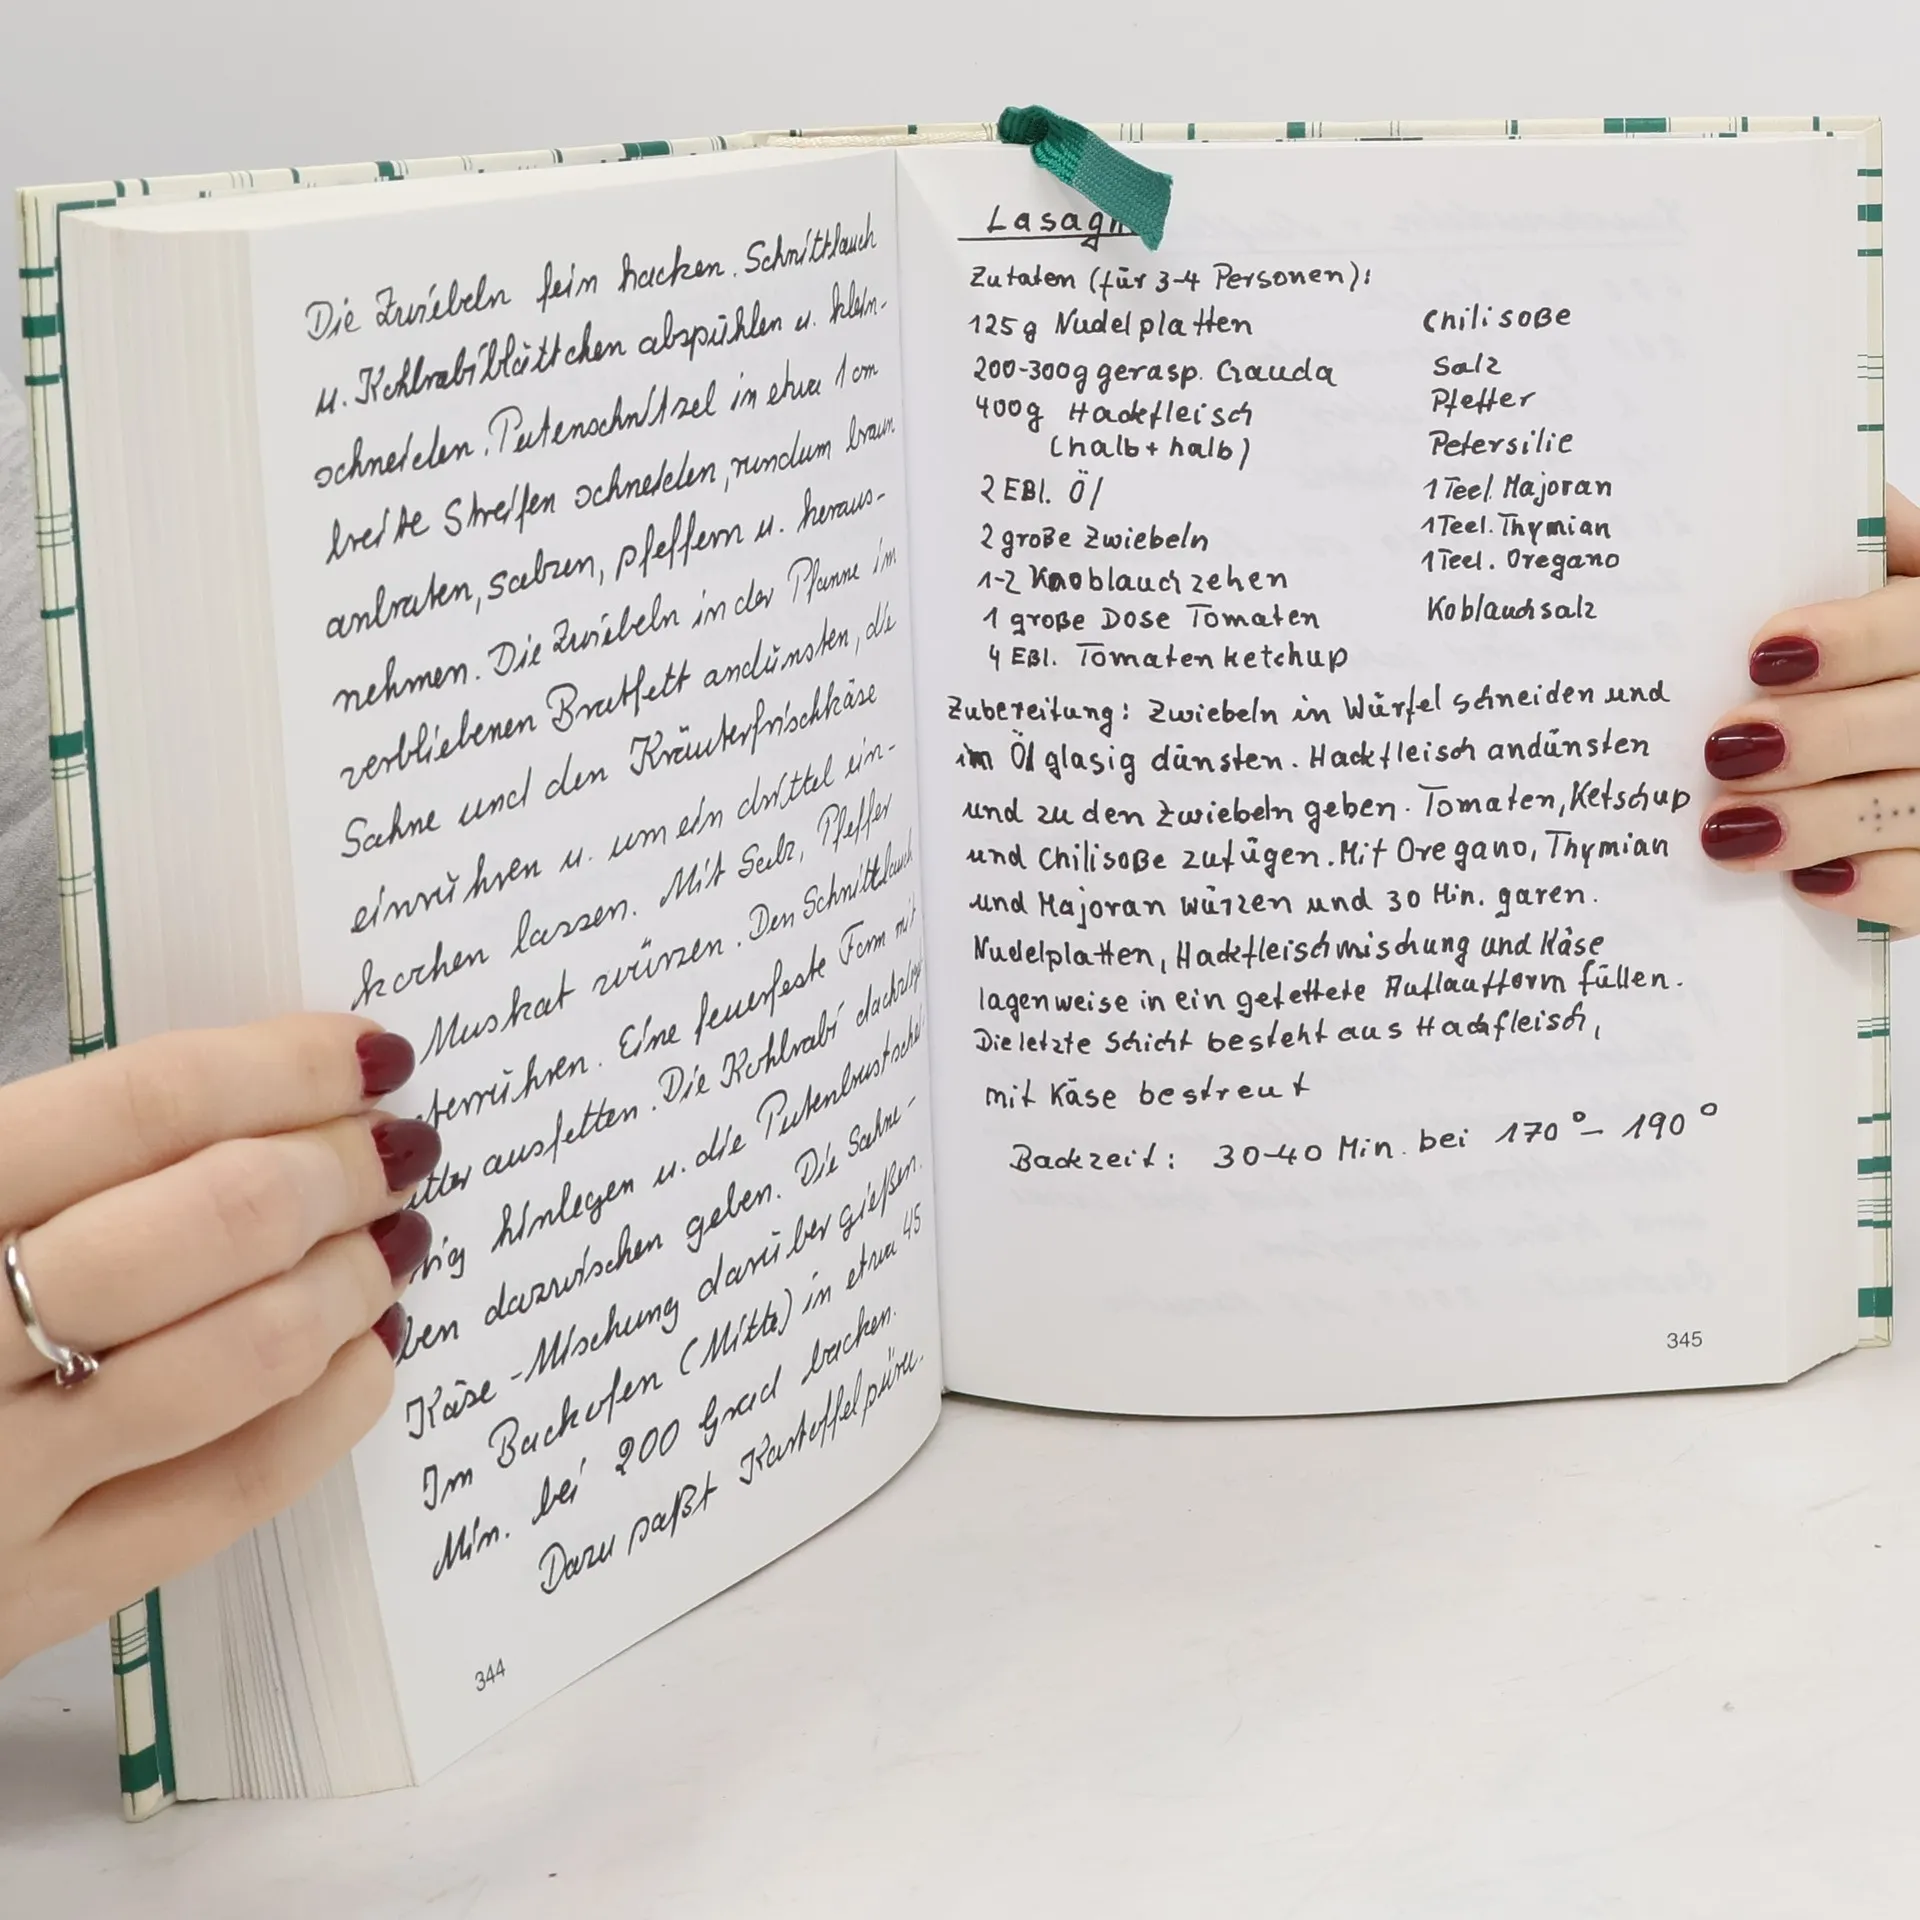 Die Zwiebeln fein hacken. Schnittlauch
u. Kohlrabiblättchen abspühlen u. klein-
schneiden. Putenschnitzel in etwa 1 cm
breite Streifen schneiden, rundum braun
anbraten, salzen, pfeffern u. heraus-
nehmen. Die Zwiebeln in der Pfanne im
verbliebenen Bratfett andünsten, die
Sahne und den Kräuterfrischkäse
einrühren u. um ein drittel ein-
kochen lassen. Mit Salz, Pfeffer
Muskat würzen. Den Schnittlauch
terrühren. Eine feuerfeste Form mit
utter ausfetten. Die Kohlrabi dachzieg
tig hinlegen u. die Putenbrustschei
ben dazwischen geben. Die Sahne-
Käse-Mischung darüber gießen.
Im Backofen (Mitte) in etwa 45
Min. bei 200 Grad backen.
Dazu paßt Kartoffelpüree.
344
Lasagn
Zutaten (für 3-4 Personen):
125 g Nudelplatten
200-300g gerasp. Gauda
400g Hackfleisch
(halb + halb)
2 EBl. Öl
2 große Zwiebeln
1-2 Knoblauchzehen
1 große Dose Tomaten
4 EBl. Tomatenketchup
Chilisoße
Salz
Pfeffer
Petersilie
1 Teel. Majoran
1 Teel. Thymian
1 Teel. Oregano
Koblauchsalz
Zubereitung: Zwiebeln in Würfel schneiden und
im Öl glasig dünsten. Hackfleisch andünsten
und zu den Zwiebeln geben. Tomaten, Ketschup
und Chilisoße zufügen. Mit Oregano, Thymian
und Majoran würzen und 30 Min. garen.
Nudelplatten, Hackfleischmischung und Käse
lagenweise in ein gefettete Auflaufform füllen.
Die letzte Schicht besteht aus Hackfleisch,
mit Käse bestreut
Backzeit: 30-40 Min. bei 170° - 190°
345